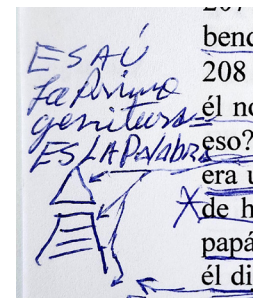 ESAÚ
La primo
genitura
ES LA Palabra
bend
208
él no
eso?
era u
de h
papá
él di